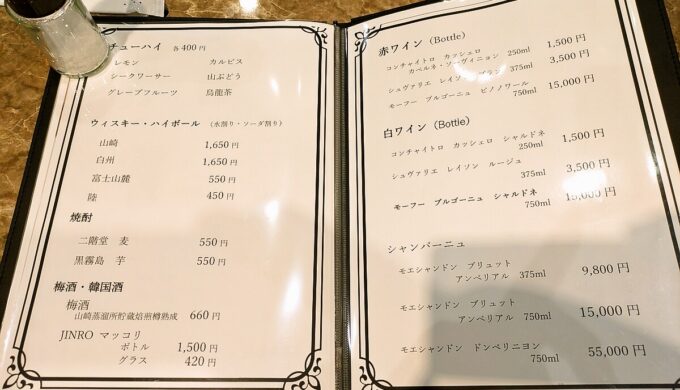 チューハイ 各400円
レモン カルピス
シークワーサー 山ぶどう
グレープフルーツ 烏龍茶
ウィスキー・ハイボール (水割り・ソーダ割り)
山崎 1,650円
白州 1,650円
富士山麓 550円
陸 450円
焼酎
二階堂 麦 550円
黒霧島 芋 550円
梅酒・韓国酒
梅酒
山崎蒸溜所貯蔵焙煎樽熟成 660円
JINRO マッコリ
ボトル 1,500円
グラス 420円
赤ワイン (Bottle)
コンチャイトロ カッシェロ
カベルネ・ソーヴィニョン 250ml 1,500円
シュヴァリエ レイソン ブラン 375ml 3,500円
モーフー ブルゴーニュ ピノノワール
750ml 15,000円
白ワイン (Bottle)
コンチャイトロ カッシェロ シャルドネ
250ml 1,500円
シュヴァリエ レイソン ルージュ
375ml 3,500円
モーフー ブルゴーニュ シャルドネ
750ml 15,000円
シャンパーニュ
モエシャンドン ブリュット
アンペリアル 375ml 9,800円
モエシャンドン ブリュット
アンペリアル 750ml 15,000円
モエシャンドン ドンペリニヨン
750ml 55,000円